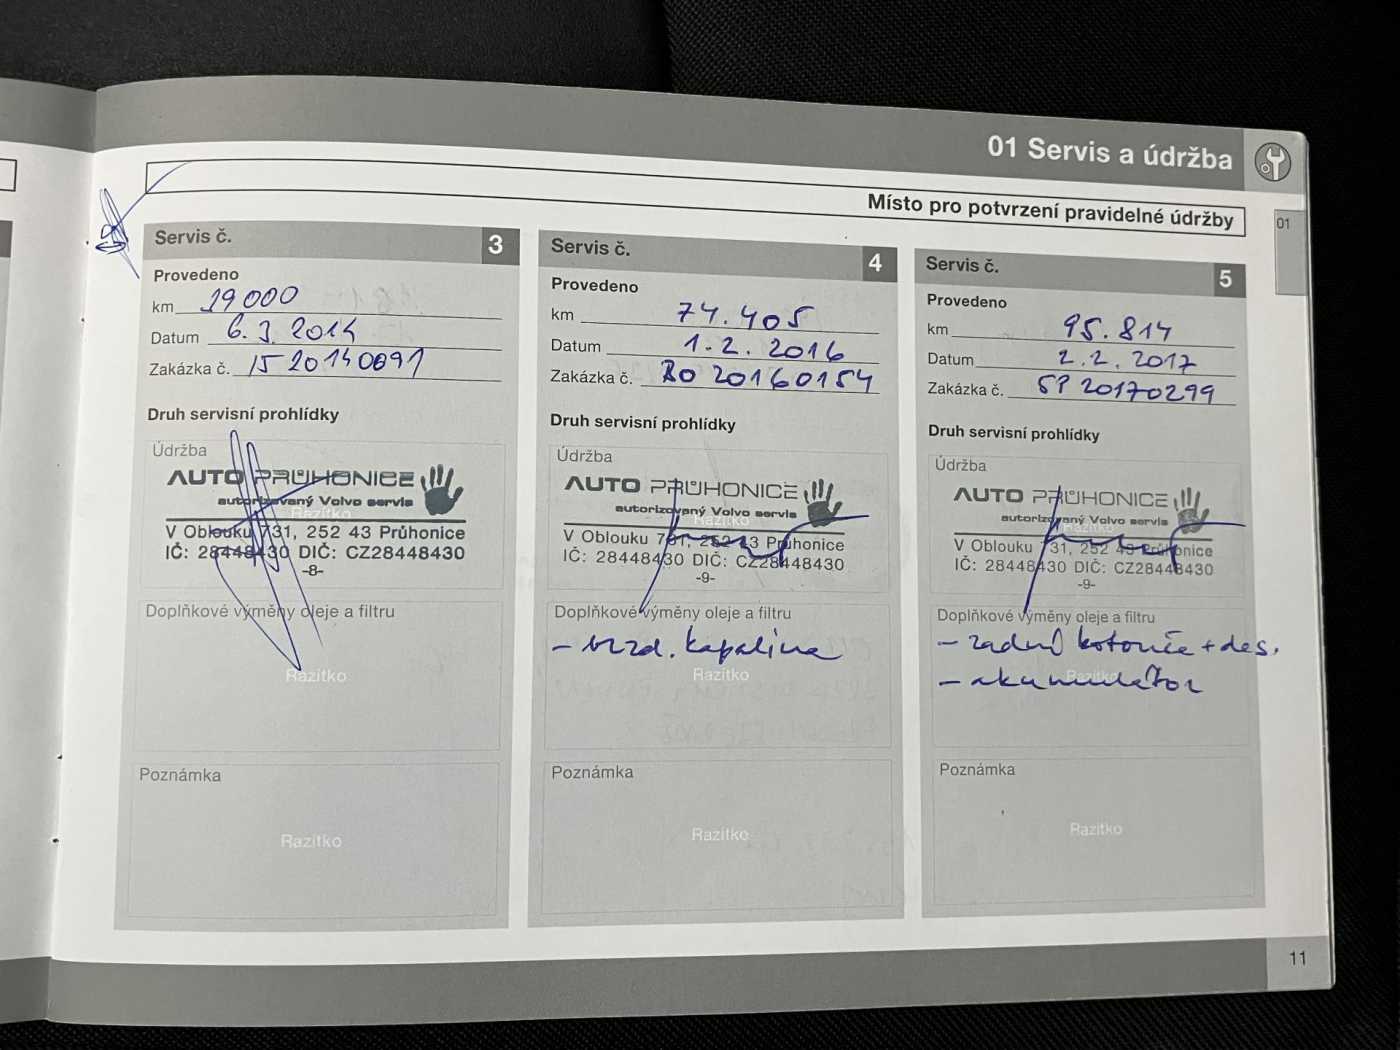 01 Servis a údržba
01
Místo pro potvrzení pravidelné údržby
Servis č. 3
Provedeno
km 19000
Datum 6.3.2014
Zakázka č. 15 20140691
Druh servisní prohlídky
Údržba
AUTO PRŮHONICE
autorizovaný Volvo servis
Razítko
V Oblouku 731, 252 43 Průhonice
IČ: 28448430 DIČ: CZ28448430
-8-
Doplňkové výměny oleje a filtru
Razítko
Poznámka
Razítko
Servis č. 4
Provedeno
km 74.405
Datum 1.2.2016
Zakázka č. RO 20160154
Druh servisní prohlídky
Údržba
AUTO PRŮHONICE
autorizovaný Volvo servis
Razítko
V Oblouku 731, 252 43 Průhonice
IČ: 28448430 DIČ: CZ28448430
-9-
Doplňkové výměny oleje a filtru
- brzd. kapalina
Razítko
Poznámka
Razítko
Servis č. 5
Provedeno
km 95.814
Datum 2.2.2017
Zakázka č. SP 20170299
Druh servisní prohlídky
Údržba
AUTO PRŮHONICE
autorizovaný Volvo servis
Razítko
V Oblouku 731, 252 43 Průhonice
IČ: 28448430 DIČ: CZ28448430
-9-
Doplňkové výměny oleje a filtru
- zadní kotouče + des.
- akumulátor
Razítko
Poznámka
Razítko
11